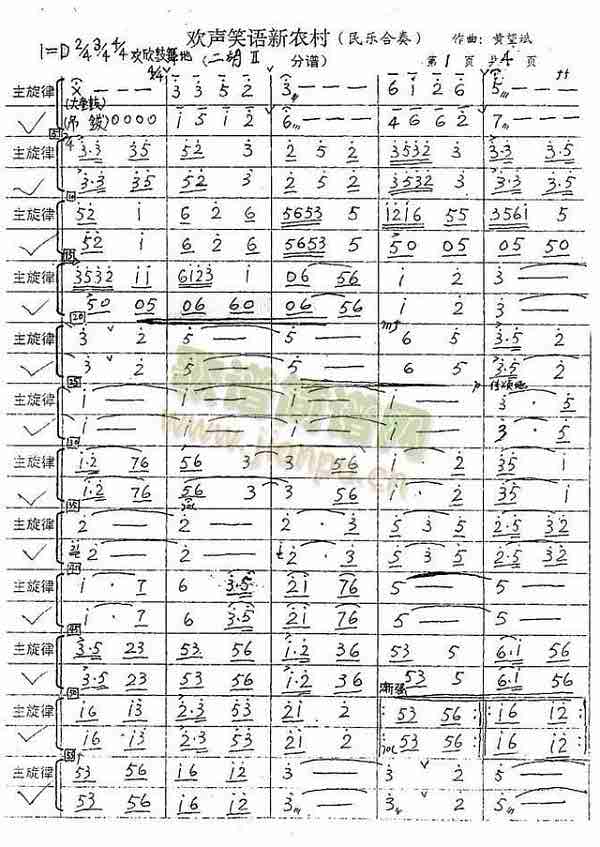 欢声笑语新农村(民乐合奏) 作曲:黄望斌
1=D 2/4 3/4 4/4 欢欣鼓舞地 (二胡 II 分谱) 第1页 共4页
主旋律 X - - - 3 3 5 2 3 - - - 6 1 2 6 5 - - -
0000 1 5 1 2 6 - - - 4 6 6 2 7 - - -
主旋律 3·3 35 52 3 2 5 2 3532 3 3·3 3·5
3·3 35 52 3 2 5 2 3532 3 3·3 3·5
主旋律 52 1 6 2 6 5653 5 1216 55 3561 5
52 1 6 2 6 5653 5 50 05 05 50
主旋律 3532 11 6123 1 06 56 1 2 3 —
50 05 06 60 06 56 1 2 3 —
主旋律 3 2 5 — 5 — 6 5 3·5 2
3 2 5 — 5 — 6 5 3·5 2
主旋律 1 — 1 — 1 — 1 — 3 · 5
1 — 1 — 1 — 1 — 3 · 5
主旋律 1·2 76 56 3 3 56 1 · 2 35 1
1·2 76 56 3 3 56 1 · 2 35 1
主旋律 2 — 2 — 2 · 3 5 3 5 2·5 32
2 — 2 — 2 · 3 5 3 5 2·5 32
主旋律 1 · 7 6 3·5 21 76 5 — 5 —
1 · 7 6 3·5 21 76 5 — 5 —
主旋律 3·5 23 53 56 1·2 36 53 5 6·1 56
3·5 23 53 56 1·2 36 53 5 6·1 56
渐强
主旋律 16 13 2·3 53 21 2 :53 56: :16 12:
16 13 2·3 53 21 2 :53 56: :16 12:
主旋律 53 56 16 12 3 — 3 2 5 —
53 56 16 12 3 — 3 2 5 —
歌谱简谱网
www.jianpu.cn